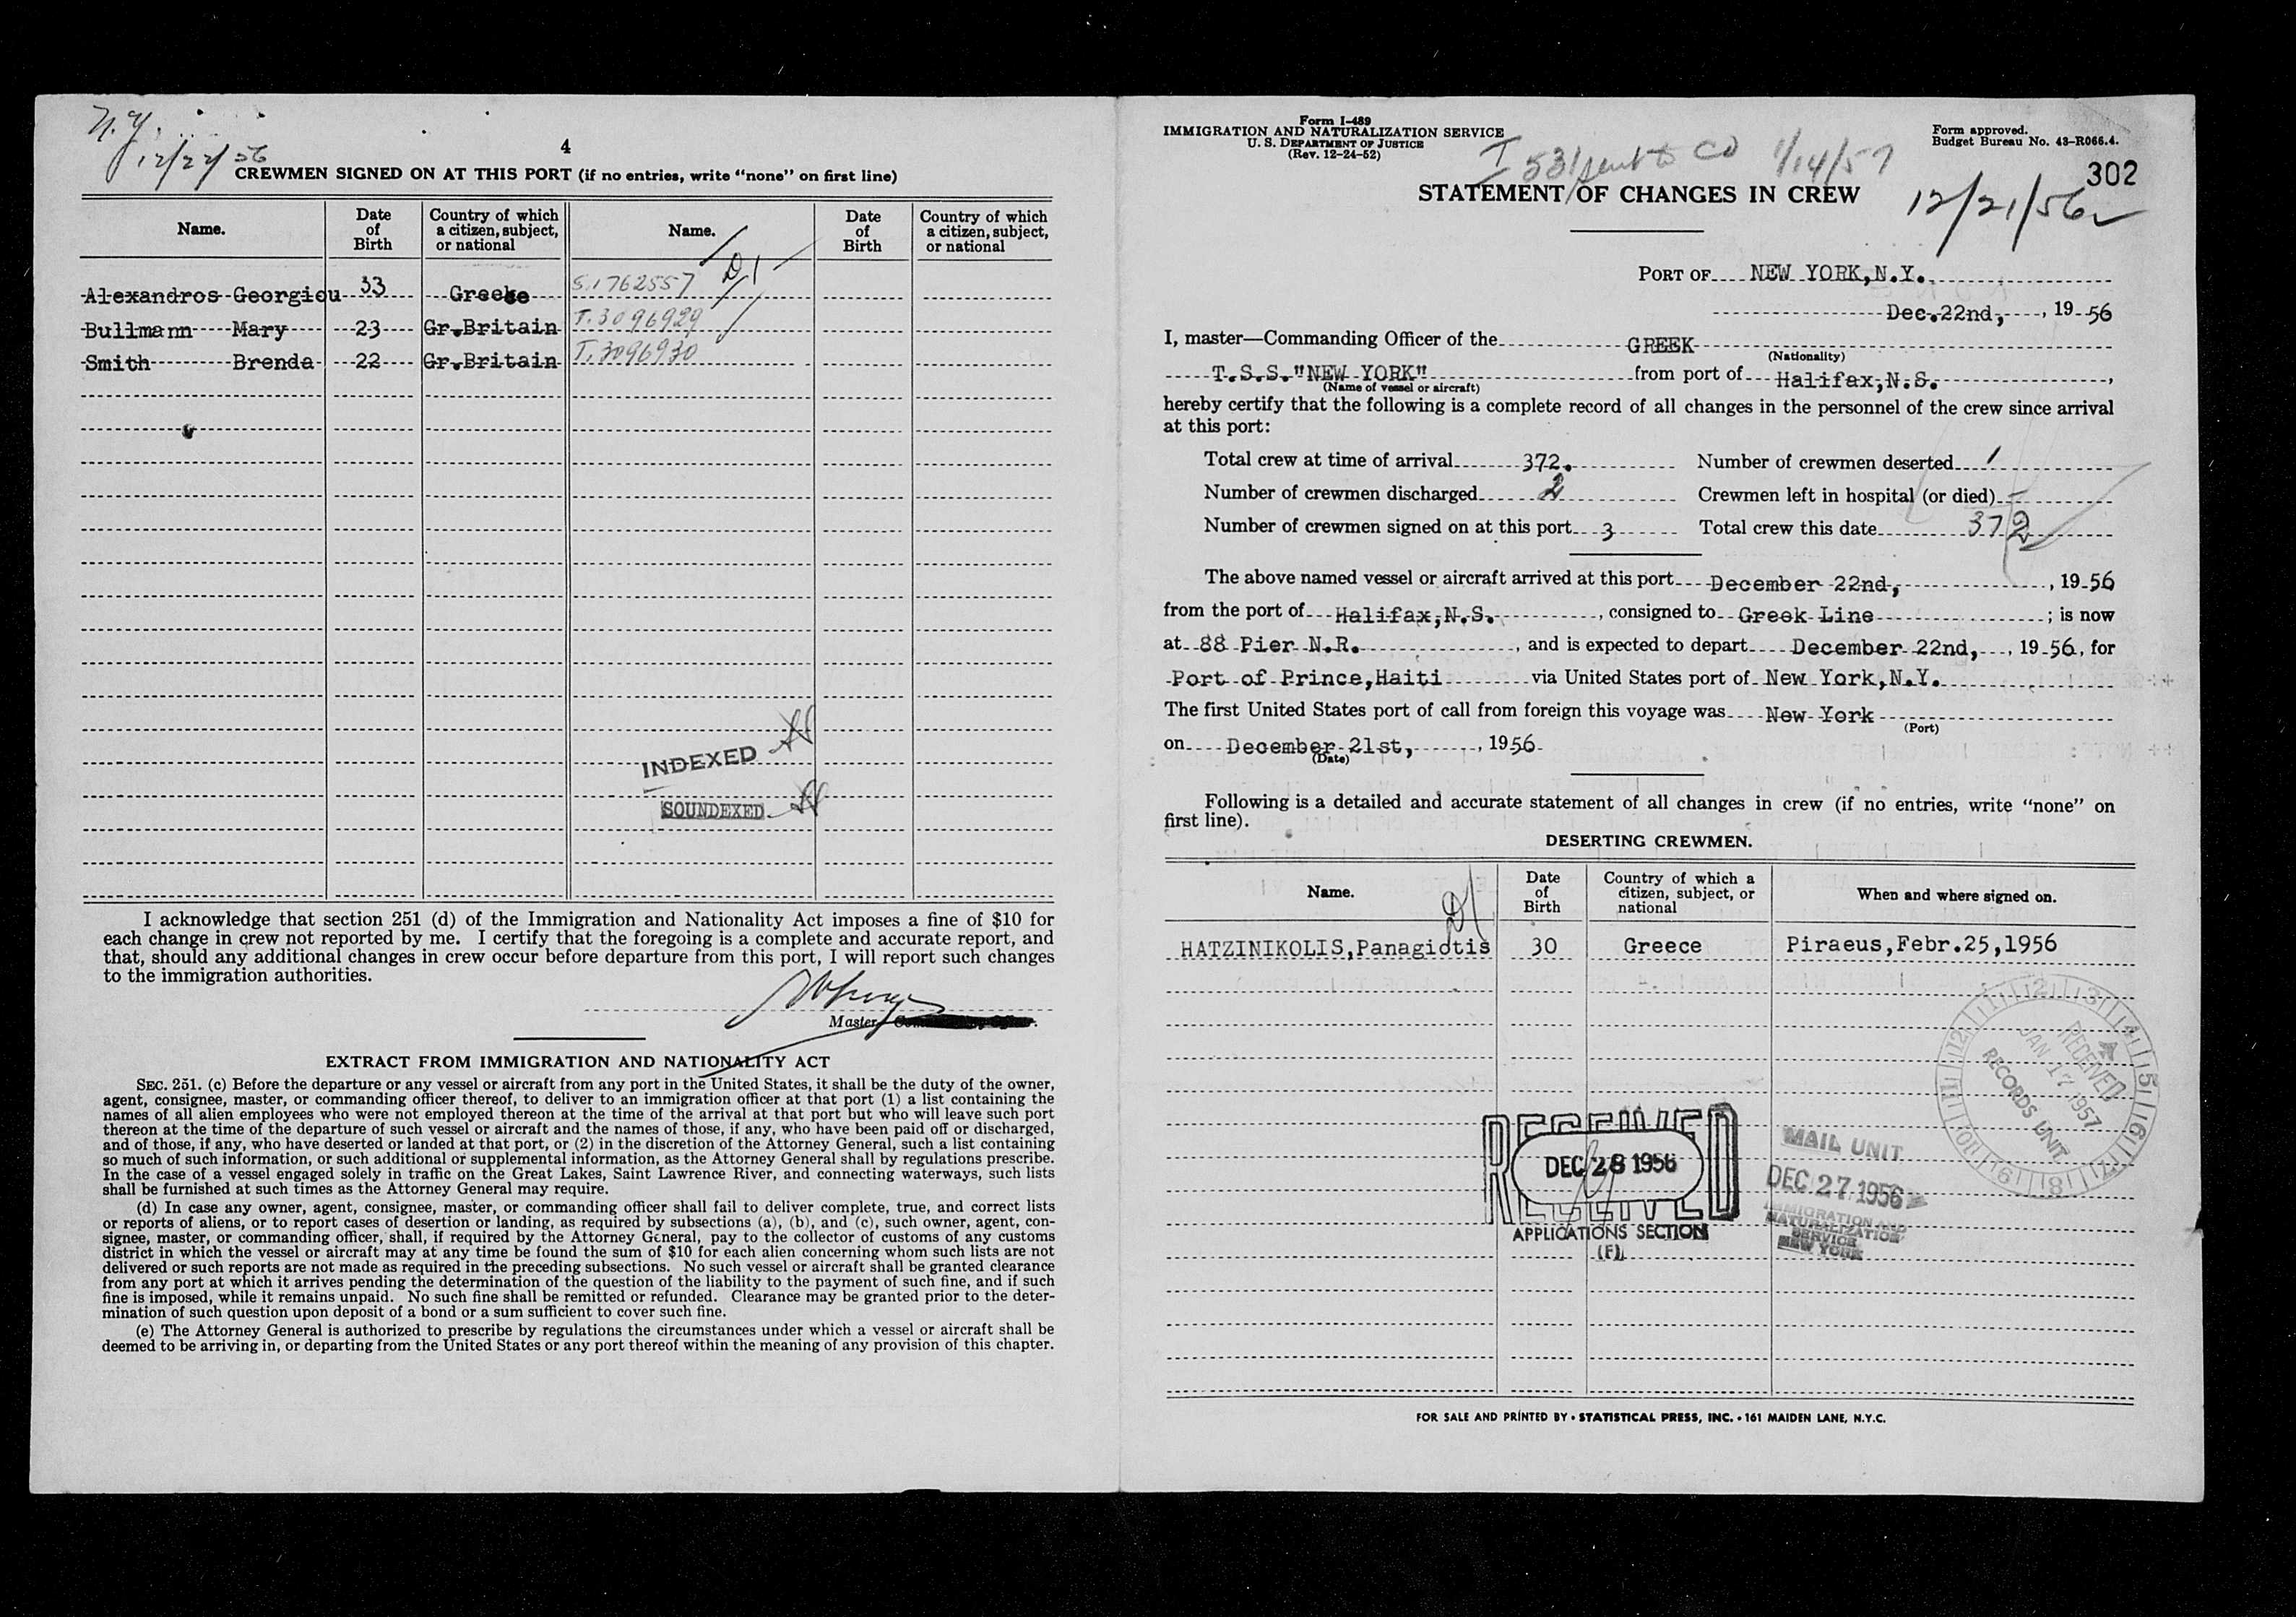 N.Y.
12/22/56
4
CREWMEN SIGNED ON AT THIS PORT (if no entries, write "none" on first line)
Name. Date of Birth Country of which a citizen, subject, or national Name. Date of Birth Country of which a citizen, subject, or national
Alexandros Georgiou 33 Greece S.1762557
Bullmann Mary 23 Gr.Britain T.3096929
Smith Brenda 22 Gr.Britain T.3096930
INDEXED
SOUNDEXED
I acknowledge that section 251 (d) of the Immigration and Nationality Act imposes a fine of $10 for
each change in crew not reported by me. I certify that the foregoing is a complete and accurate report, and
that, should any additional changes in crew occur before departure from this port, I will report such changes
to the immigration authorities.
Master
EXTRACT FROM IMMIGRATION AND NATIONALITY ACT
SEC. 251. (c) Before the departure or any vessel or aircraft from any port in the United States, it shall be the duty of the owner,
agent, consignee, master, or commanding officer thereof, to deliver to an immigration officer at that port (1) a list containing the
names of all alien employees who were not employed thereon at the time of the arrival at that port but who will leave such port
thereon at the time of the departure of such vessel or aircraft and the names of those, if any, who have been paid off or discharged,
and of those, if any, who have deserted or landed at that port, or (2) in the discretion of the Attorney General, such a list containing
so much of such information, or such additional or supplemental information, as the Attorney General shall by regulations prescribe.
In the case of a vessel engaged solely in traffic on the Great Lakes, Saint Lawrence River, and connecting waterways, such lists
shall be furnished at such times as the Attorney General may require.
(d) In case any owner, agent, consignee, master, or commanding officer shall fail to deliver complete, true, and correct lists
or reports of aliens, or to report cases of desertion or landing, as required by subsections (a), (b), and (c), such owner, agent, con-
signee, master, or commanding officer, shall, if required by the Attorney General, pay to the collector of customs of any customs
district in which the vessel or aircraft may at any time be found the sum of $10 for each alien concerning whom such lists are not
delivered or such reports are not made as required in the preceding subsections. No such vessel or aircraft shall be granted clearance
from any port at which it arrives pending the determination of the question of the liability to the payment of such fine, and if such
fine is imposed, while it remains unpaid. No such fine shall be remitted or refunded. Clearance may be granted prior to the deter-
mination of such question upon deposit of a bond or a sum sufficient to cover such fine.
(e) The Attorney General is authorized to prescribe by regulations the circumstances under which a vessel or aircraft shall be
deemed to be arriving in, or departing from the United States or any port thereof within the meaning of any provision of this chapter.
Form I-489
IMMIGRATION AND NATURALIZATION SERVICE
U. S. DEPARTMENT OF JUSTICE
(Rev. 12-24-52)
Form approved.
Budget Bureau No. 43-R066.4.
I 531 sent to CO 1/14/57
302
STATEMENT OF CHANGES IN CREW
12/21/56
PORT OF NEW YORK,N.Y.
Dec.22nd, , 19 56
I, master—Commanding Officer of the GREEK
(Nationality)
T.S.S."NEW YORK" from port of Halifax,N.S. ,
(Name of vessel or aircraft)
hereby certify that the following is a complete record of all changes in the personnel of the crew since arrival
at this port:
Total crew at time of arrival 372. Number of crewmen deserted 1
Number of crewmen discharged 2 Crewmen left in hospital (or died) -
Number of crewmen signed on at this port 3 Total crew this date 372
The above named vessel or aircraft arrived at this port December 22nd, , 19 56
from the port of Halifax,N.S. , consigned to Greek Line ; is now
at 88 Pier N.R. , and is expected to depart December 22nd, , 19 56, for
Port of Prince,Haiti via United States port of New York,N.Y.
The first United States port of call from foreign this voyage was New York
(Port)
on December 21st, , 1956
(Date)
Following is a detailed and accurate statement of all changes in crew (if no entries, write "none" on
first line).
DESERTING CREWMEN.
Name. Date of Birth Country of which a citizen, subject, or national When and where signed on.
HATZINIKOLIS,Panagiotis 30 Greece Piraeus,Febr.25,1956
RECEIVED
JAN 17 1957
RECORDS UNIT
RECEIVED
DEC 28 1956
RECEIVED
APPLICATIONS SECTION
(F)
MAIL UNIT
DEC 27 1956
IMMIGRATION AND
NATURALIZATION
SERVICE
NEW YORK
FOR SALE AND PRINTED BY • STATISTICAL PRESS, INC. • 161 MAIDEN LANE, N.Y.C.